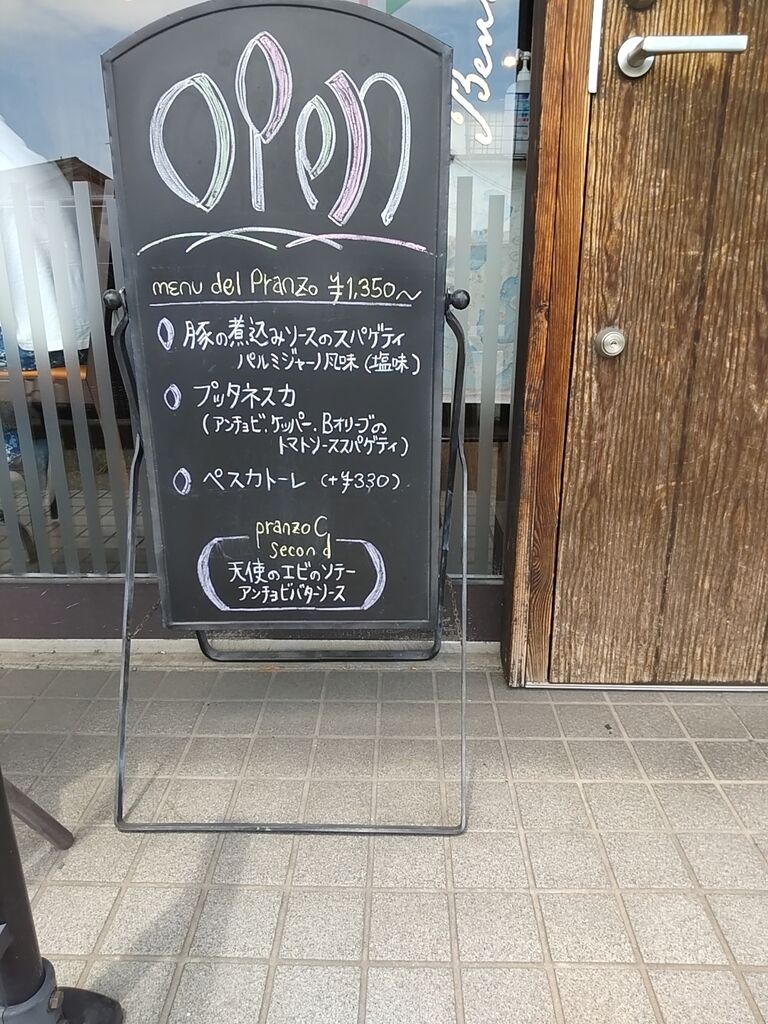 open
menu del Pranzo ¥1,350～
豚の煮込みソースのスパゲティ
パルミジャーノ風味(塩味)
プッタネスカ
(アンチョビ、ケッパー、Bオリーブの
トマトソーススパゲティ)
ペスカトーレ (+¥330)
pranzo C
second
天使のエビのソテー
アンチョビバターソース
Ben